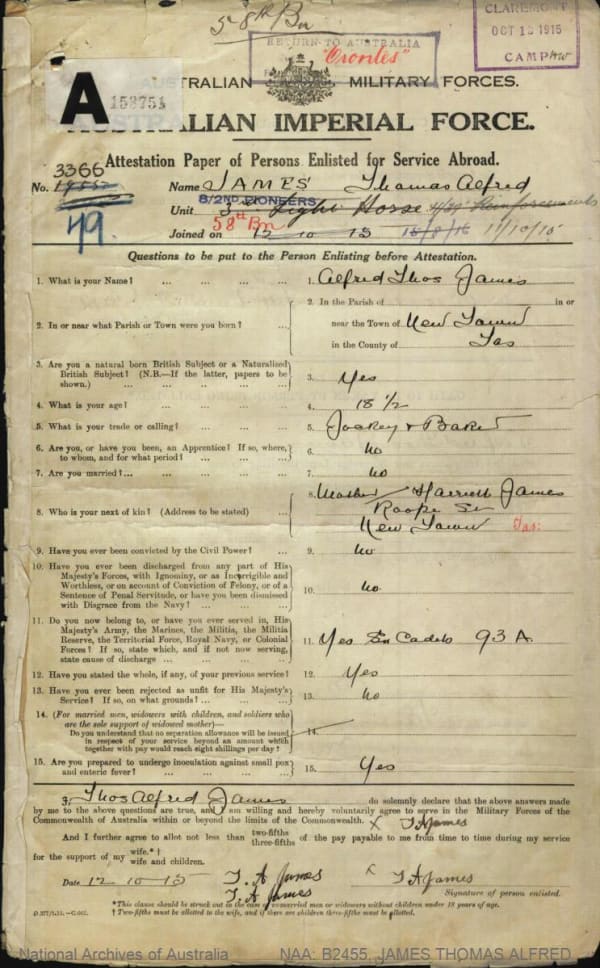 58th Bn
CLAREMONT
OCT 13 1915
CAMP
RETURN TO AUSTRALIA
"Orontes"
A
153751
AUSTRALIAN MILITARY FORCES.
AUSTRALIAN IMPERIAL FORCE.
Attestation Paper of Persons Enlisted for Service Abroad.
3366
No. Name JAMES Thomas Alfred
8/2ND PIONEERS
49. Unit 3rd Light Horse Reinforcements
58th Bn
Joined on 12 10 15 11/10/15
Questions to be put to the Person Enlisting before Attestation.
1. What is your Name? ... ... ... ... 1. Alfred Thos James
2. In or near what Parish or Town were you born? ... 2. In the Parish of in or
near the Town of New Town
in the County of Tas
3. Are you a natural born British Subject or a Naturalised
British Subject? (N.B.—If the latter, papers to be
shown.) ... ... ... ... ... 3. Yes
4. What is your age? ... ... ... ... 4. 18 1/2
5. What is your trade or calling? ... ... ... 5. Jockey & Baker
6. Are you, or have you been, an Apprentice? If so, where,
to whom, and for what period? ... ... ... 6. no
7. Are you married? ... ... ... ... ... 7. no
8. Who is your next of kin? (Address to be stated) ... 8. Mother Harriett James
Roope St
New Town Tas:
9. Have you ever been convicted by the Civil Power? ... 9. no
10. Have you ever been discharged from any part of His
Majesty's Forces, with Ignominy, or as Incorrigible and
Worthless, or on account of Conviction of Felony, or of a
Sentence of Penal Servitude, or have you been dismissed
with Disgrace from the Navy? ... ... ... 10. no
11. Do you now belong to, or have you ever served in, His
Majesty's Army, the Marines, the Militia, the Militia
Reserve, the Territorial Force, Royal Navy, or Colonial
Forces? If so, state which, and if not now serving,
state cause of discharge ... ... ... ... 11. Yes Sen Cadets 93 A
12. Have you stated the whole, if any, of your previous service? 12. Yes
13. Have you ever been rejected as unfit for His Majesty's
Service? If so, on what grounds? ... ... ... 13. no
14. (For married men, widowers with children, and soldiers who
are the sole support of widowed mother)—
Do you understand that no separation allowance will be issued
in respect of your service beyond an amount which
together with pay would reach eight shillings per day? 14.
15. Are you prepared to undergo inoculation against small pox
and enteric fever? ... ... ... ... ... 15. Yes
I, Thos Alfred James do solemnly declare that the above answers made
by me to the above questions are true, and I am willing and hereby voluntarily agree to serve in the Military Forces of the
Commonwealth of Australia within or beyond the limits of the Commonwealth. X T A James
And I further agree to allot not less than two-fifths three-fifths of the pay payable to me from time to time during my service
for the support of my wife.*† wife and children.
Date 12 10 15 T. A James X T A James
T. A James Signature of person enlisted.
*This clause should be struck out in the case of unmarried men or widowers without children under 18 years of age.
† Two-fifths must be allotted to the wife, and if there are children three-fifths must be allotted.
National Archives of Australia NAA: B2455, JAMES THOMAS ALFRED